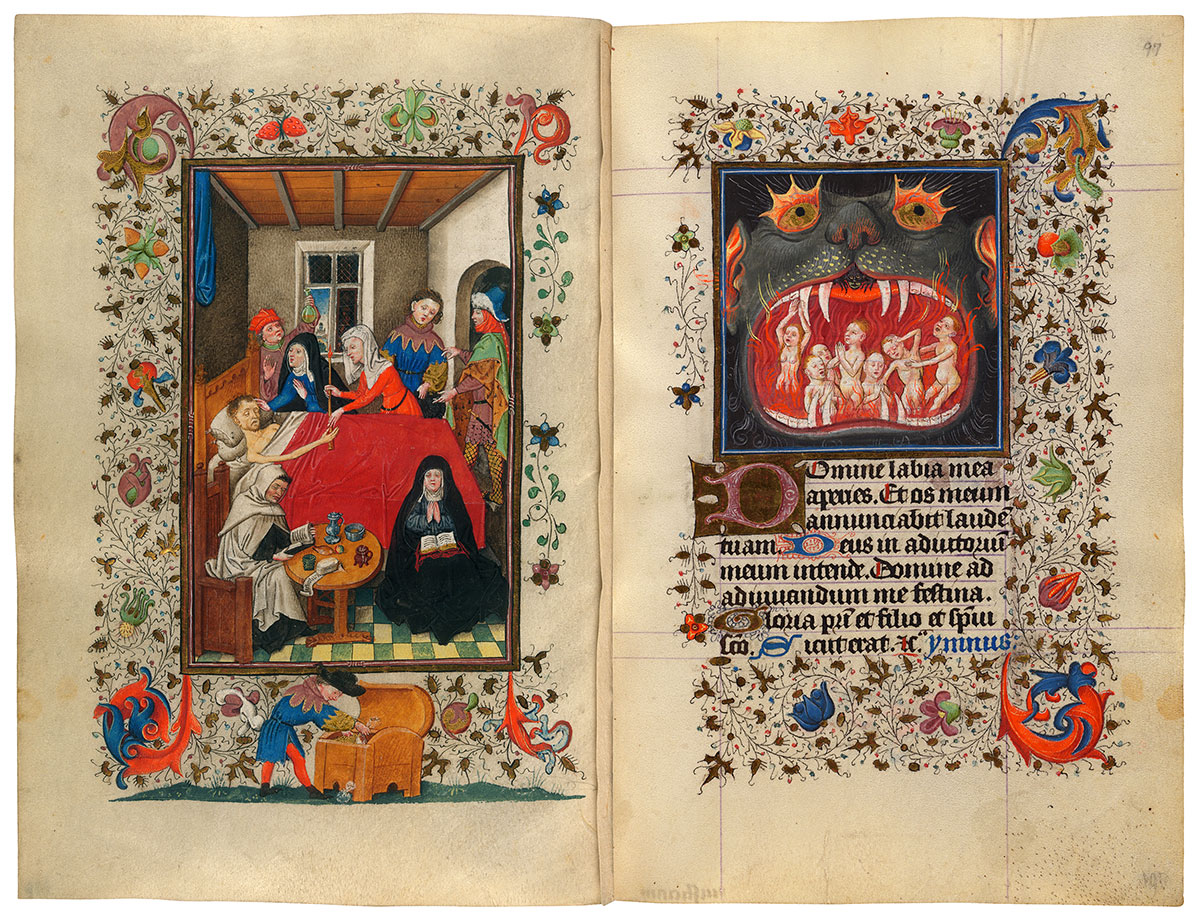 97
Domine labia mea
aperies. Et os meum
annunciabit laudē
tuam. Deus in adiutoriū
meum intende. Domine ad
adiuuandum me festina.
Gloria pr̄i et filio et sp̄ui
sc̄o. Sicut erat. ⁊c̄. ymnus: